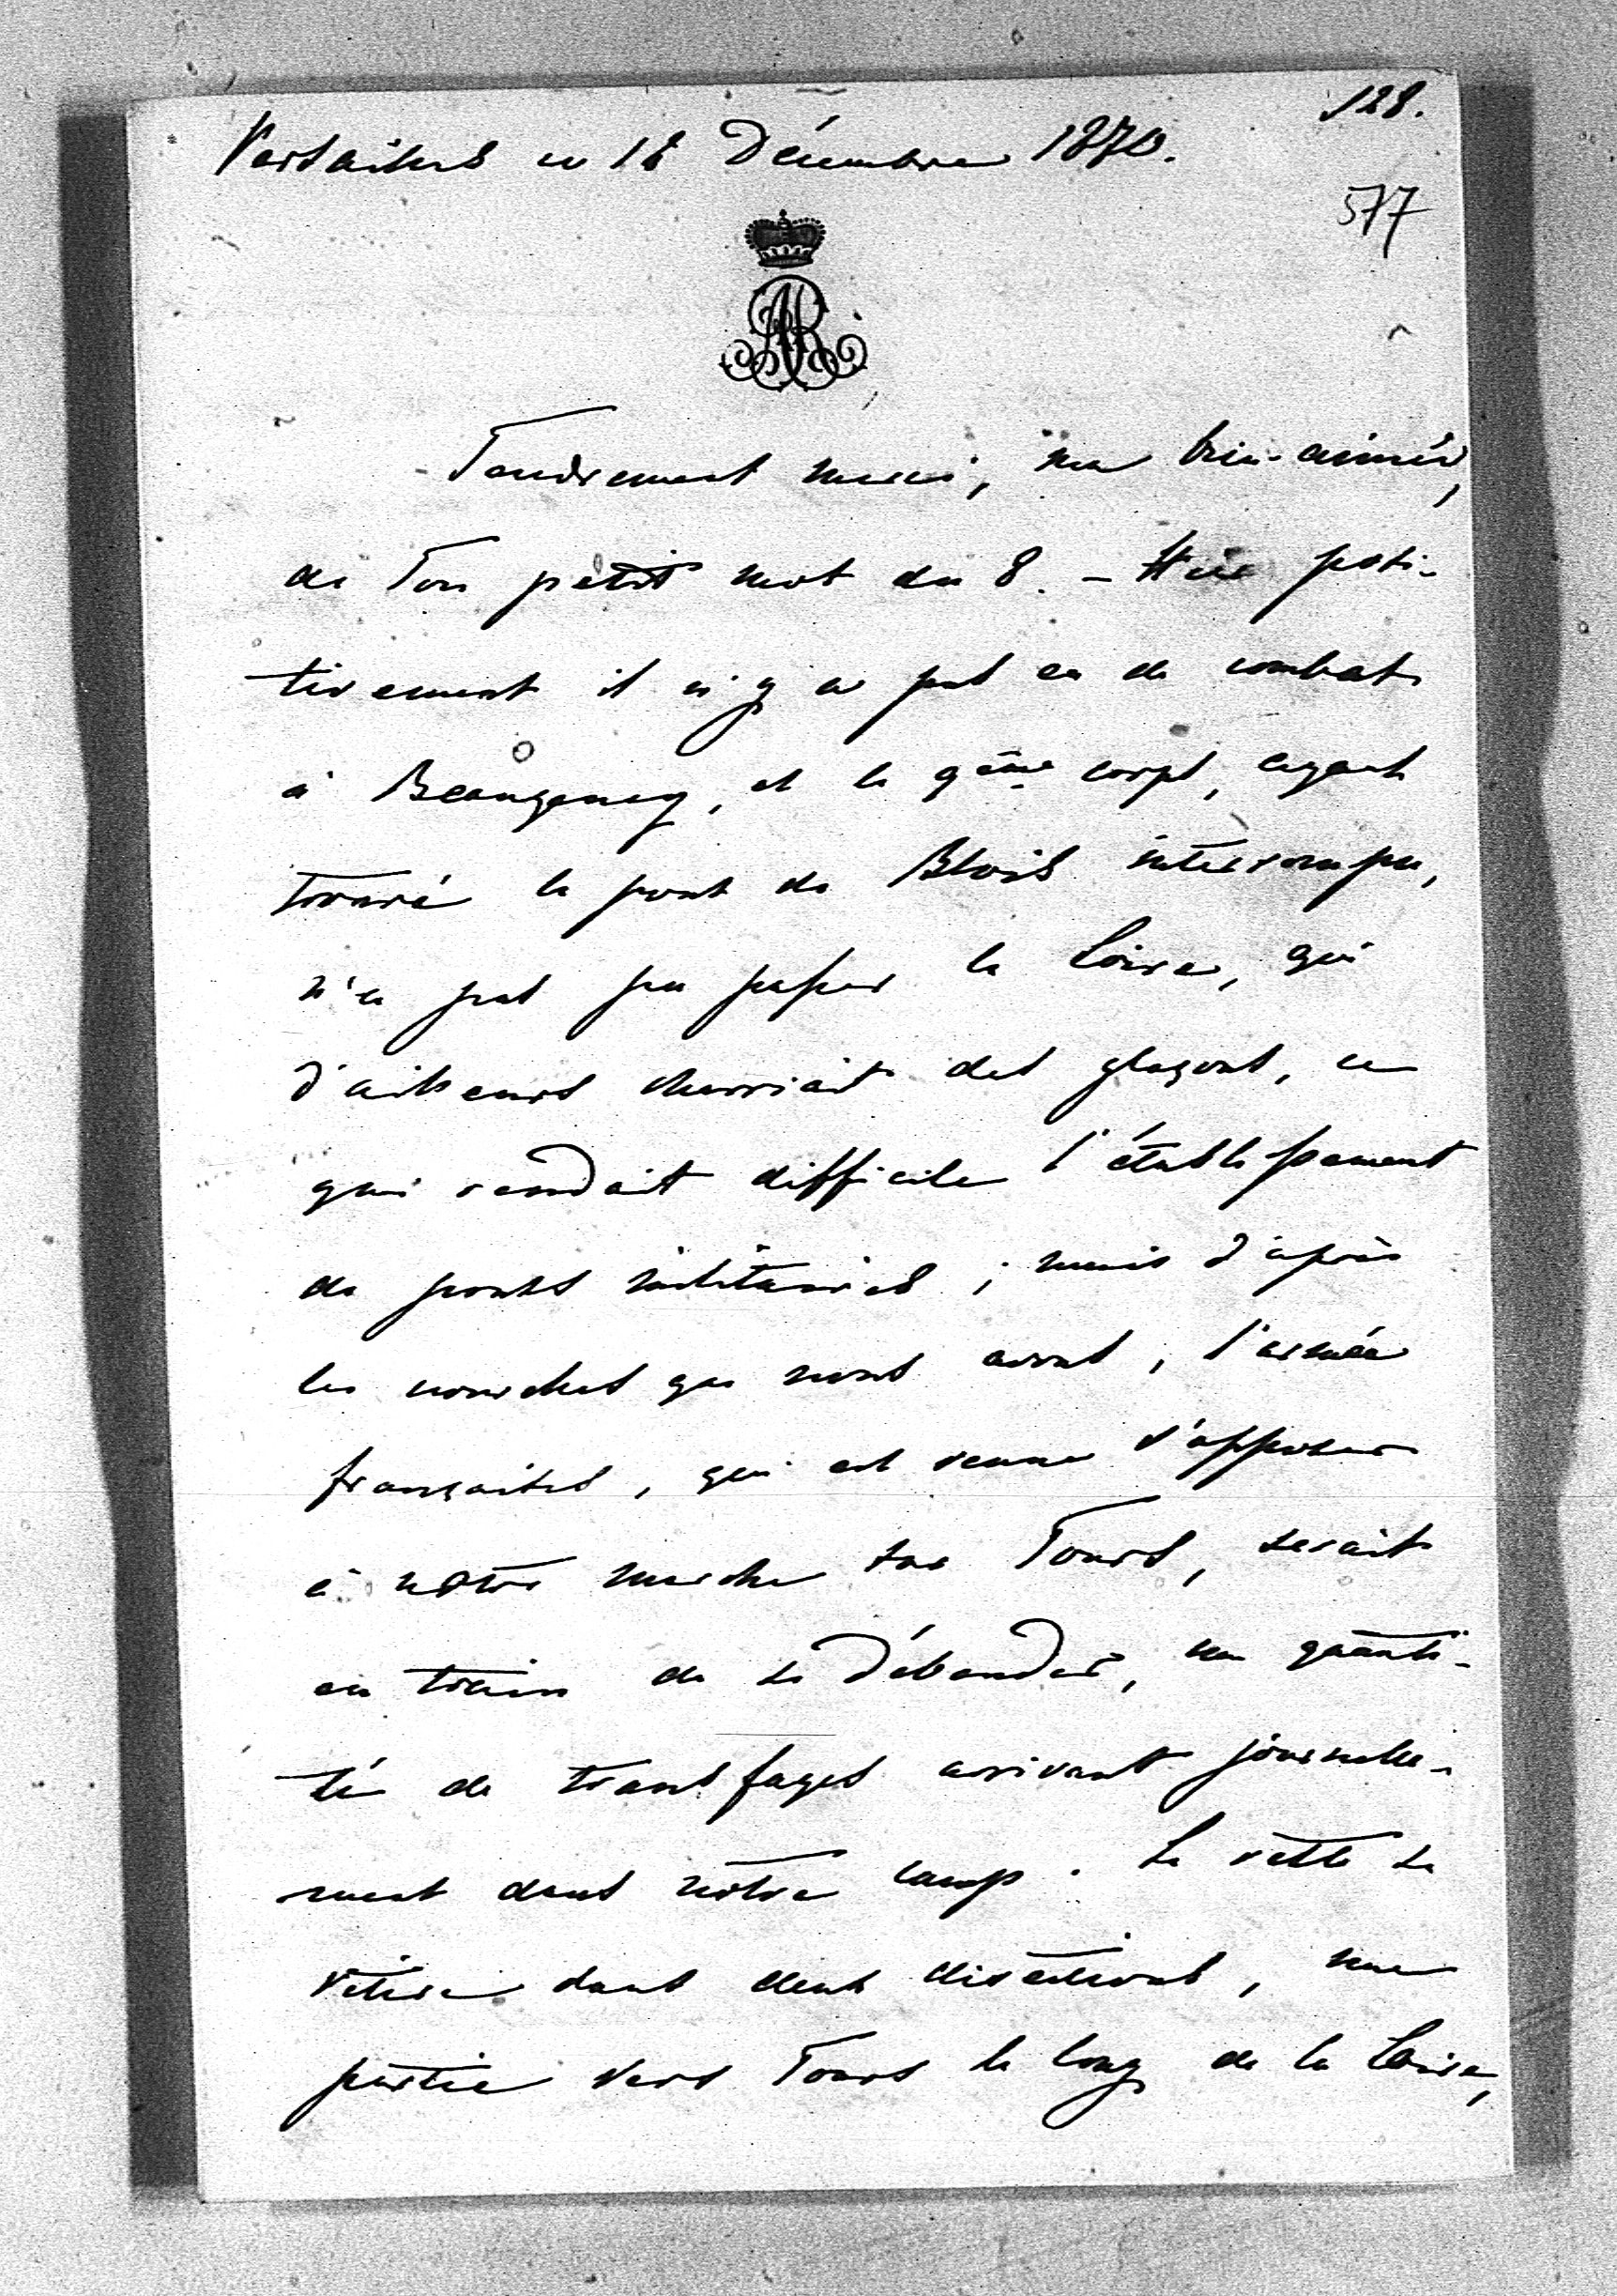 128.
Versailles ce 12 Décembre 1870.
577
AR
Tendrement merci, ma bien-aimée,
de Ton petit mot du 8. – Hier posi-
tivement il n'y a pas eu de combat
à Beaugency, et le 9ème corps, ayant
trouvé le pont de Blois interrompu,
n'a pas pu passer la Loire, qui
d'ailleurs charriait des glaçons, ce
qui rendait difficile l'établissement
de ponts militaires ; mais d'après
les nouvelles que nous avons, l'armée
française, qui est venue s'opposer
à notre marche sur Tours, serait
en train de se débander, une quanti-
té de transfuges arrivant journelle-
ment dans notre camp. Le reste se
retire dans deux directions, une
partie vers Tours le long de la Loire,